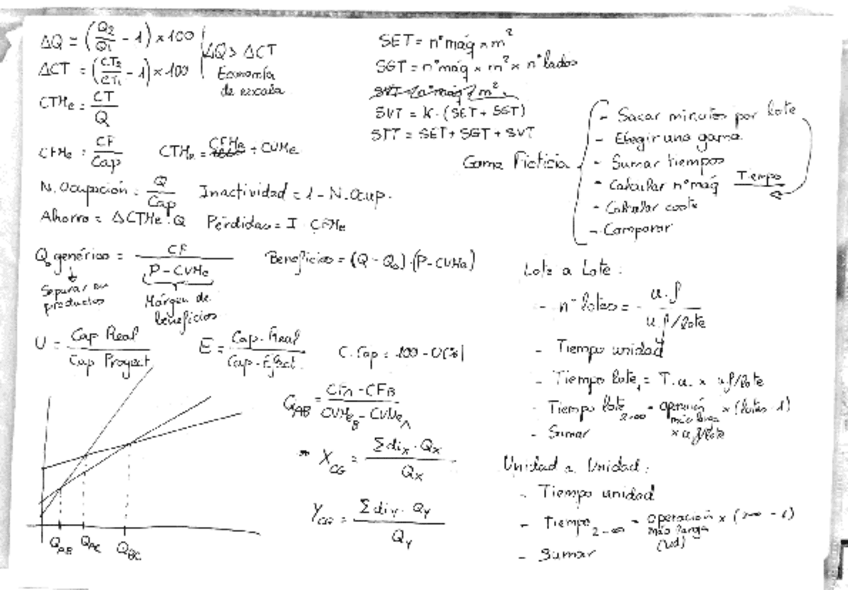 ΔQ = (Q2/Q1 - 1) × 100
ΔCT = (CT2/CT1 - 1) × 100
ΔQ > ΔCT
Economía
de escala
CTMe = CT/Q
CFMe = CF/Cap
CTMe = CFMe + CVMe
N. Ocupación = Q/Cap
Inactividad = 1 - N. Ocup.
Ahorro = ΔCTMe · Q
Pérdidas = I · CFMe
Q0 genérico = CF/(P - CVMe)
Separar en
productos
Márgen de
beneficios
Beneficios = (Q - Q0) · (P - CVMe)
U = Cap Real/Cap Proyect
E = Cap. Real/Cap. Efect.
C. Cap = 100 - U(%)
QAB QAC QBC
QAB = (CFA - CFB)/(CVMeB - CVMeA)
XCG = Σdix · QX/QX
YCG = Σdiy · QY/QY
SET = nº máq × m²
SGT = nº máq × m² × nº lados
SVT = K · (SET + SGT)
STT = SET + SGT + SVT
Gama Ficticia
- Sacar minutos por lote
- Elegir una gama
- Sumar tiempos
- Calcular nº máq Tiempo
- Calcular coste
- Comparar
Lote a Lote:
- nº lotes = u.f/u.f/lote
- Tiempo unidad
- Tiempo lote1 = T.u. × u.f/lote
- Tiempo lote2-∞ = operación más larga × (lotes - 1)
× u.f/lote
- Sumar
Unidad a Unidad:
- Tiempo unidad
- Tiempo2-∞ = operación × (
más larga
(ud)
- Sumar